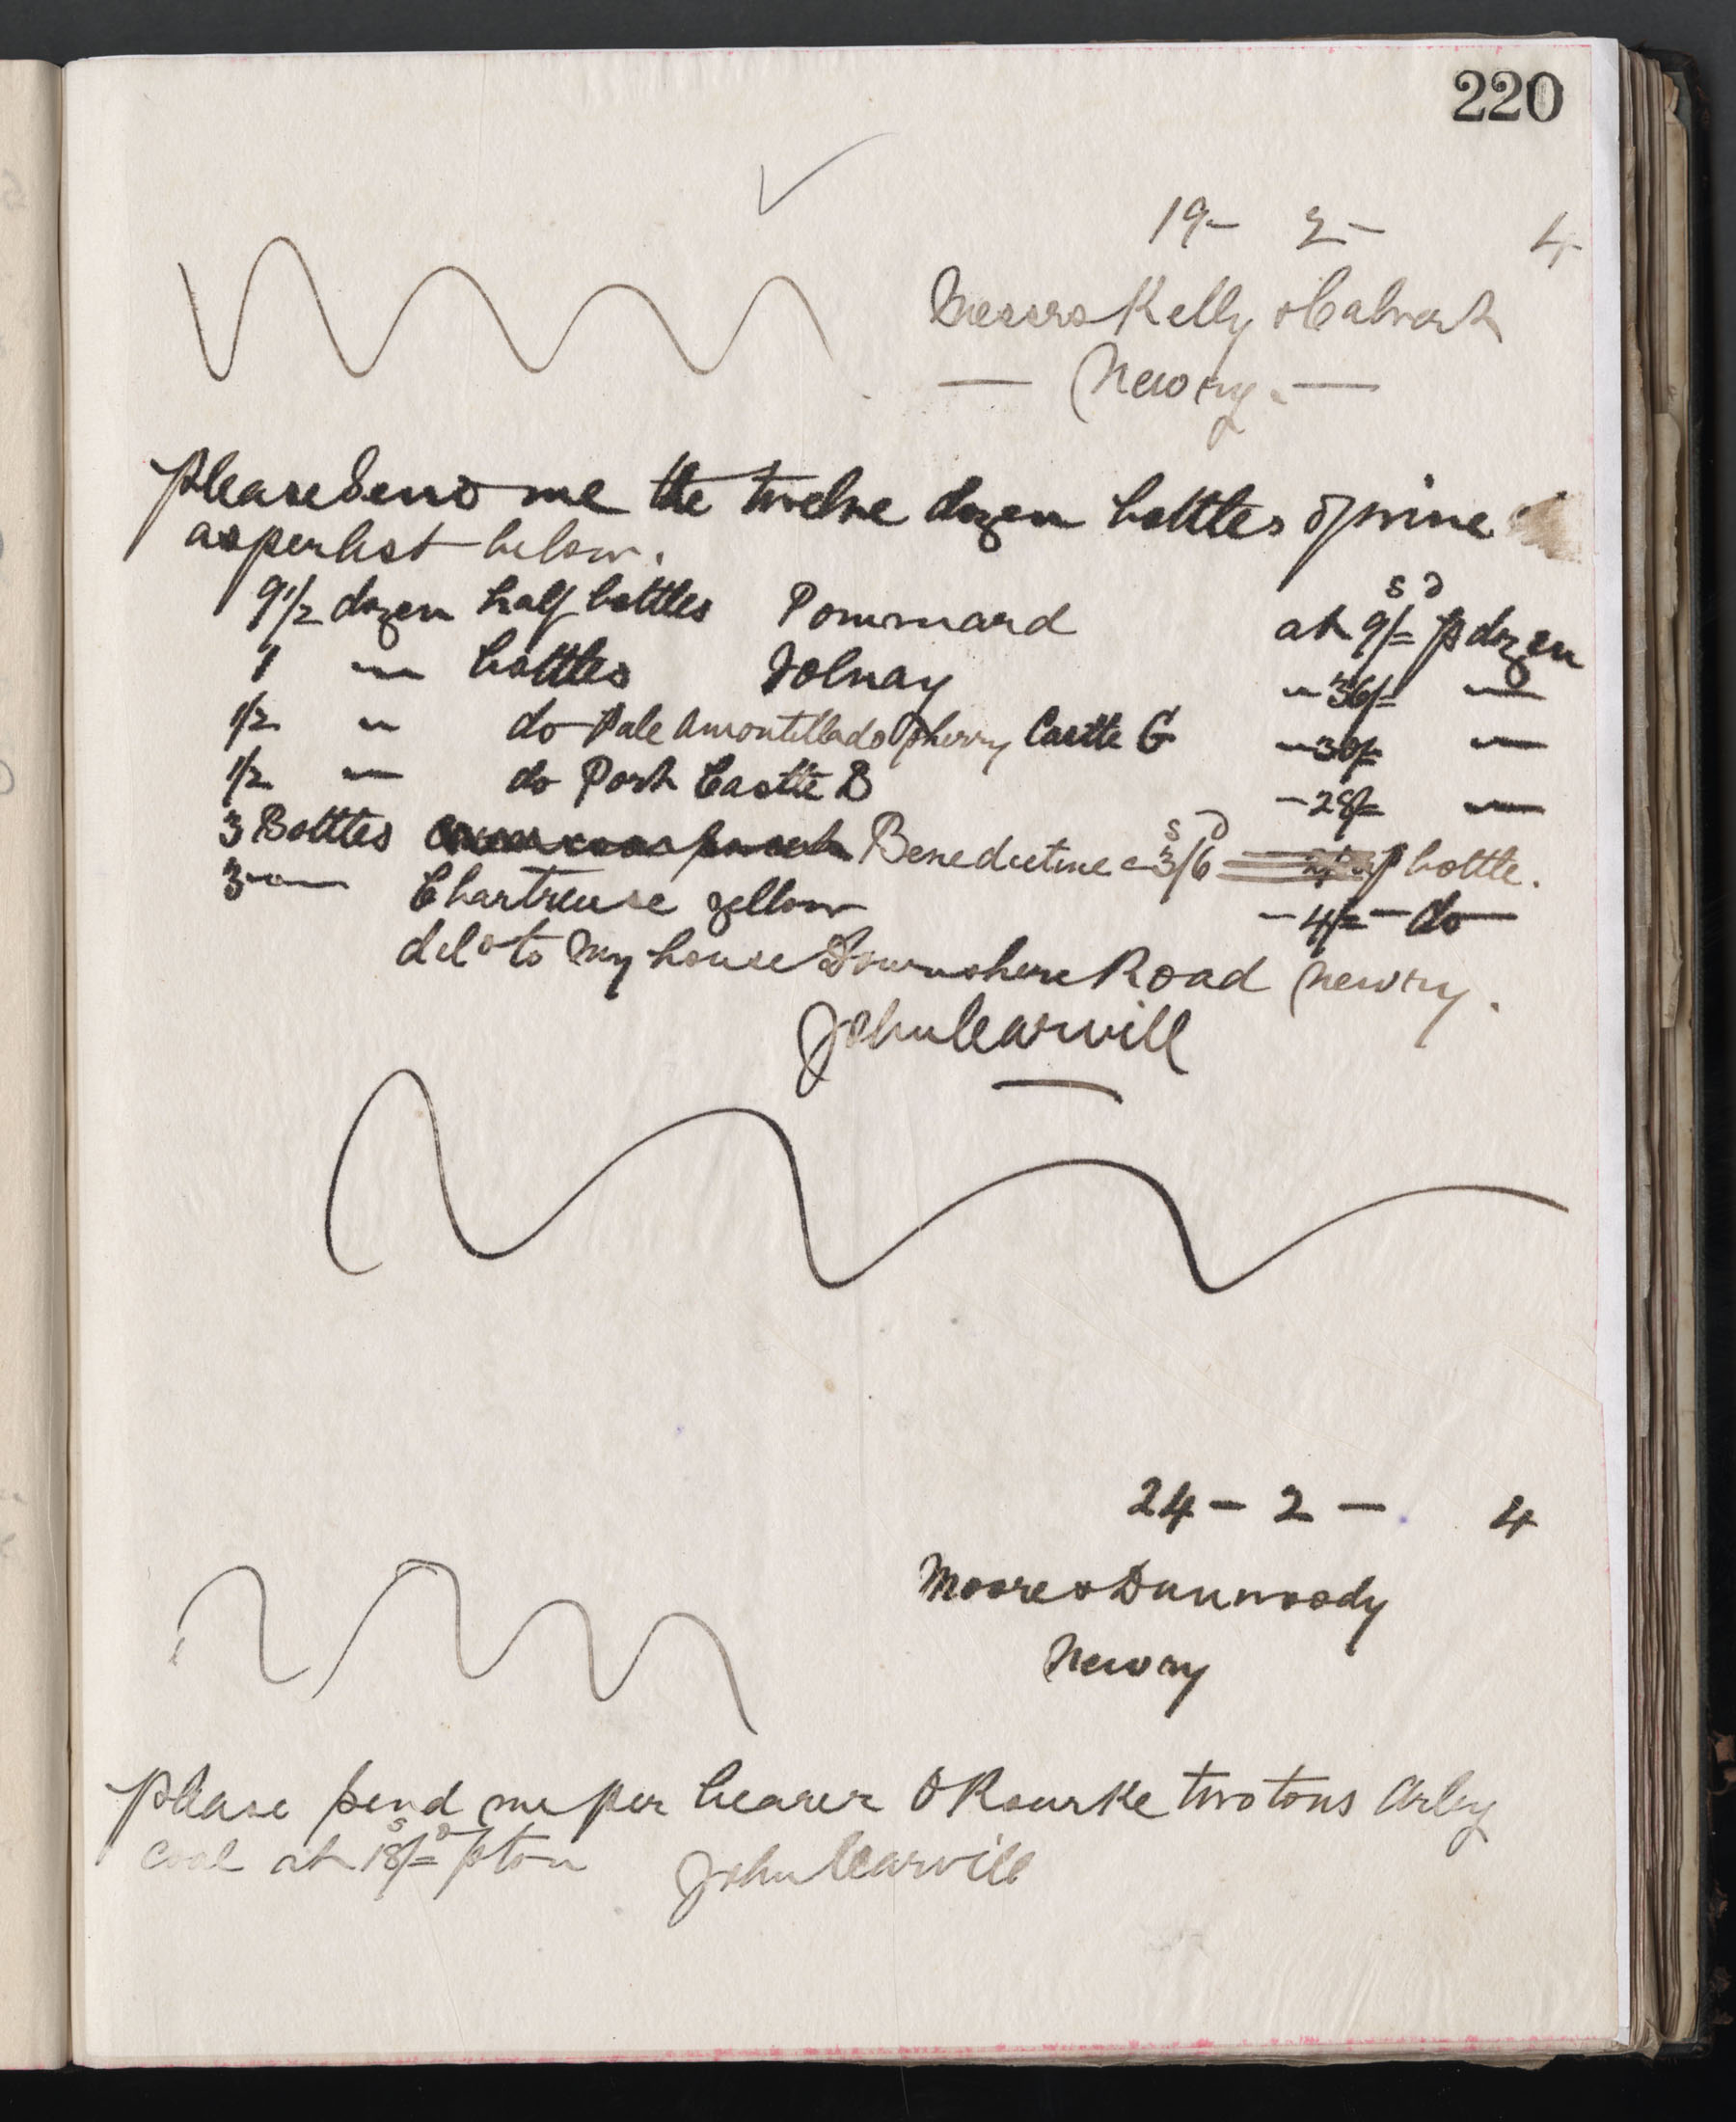 220
19- 2- 4
Messrs Kelly &
- Newry. -
Please send me the twelve dozen bottles of wine
as per list below.
s d
9 1/2 dozen half bottles Pommard at 9/= p dozen
1 " bottles Volnay " 36/= "
1/2 " do Pale Amontillado Sherry Castle G " 30/= "
1/2 " do Port Castle B " 28/= "
s d
3 Bottles Benedictine " 3/6 p bottle.
3 " Chartreuse yellow - 4/= - do
deld to my house Downshire Road Newry.
John Carvill
24 - 2 - 4
Moore & Dunwoody
Newry
Please send me per bearer O Rourke two tons Arley
s d
coal at 18/= p ton John Carvill